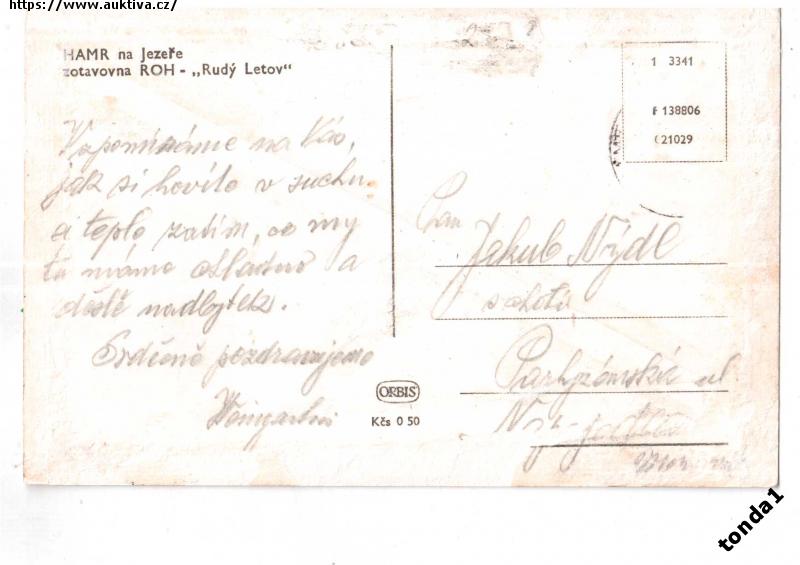 https://www.auktiva.cz/
HAMR na Jezeře
zotavovna ROH - „Rudý Letov“
Vzpomínáme na Vás,
jak si hovíte v suchu
a teple zatím, co my
tu máme chladno a
deště nadbytek.
Srdečně pozdravujeme
1 3341
138806
21029
Jakub Nýdl
s chotí
Partyzánská ul
ORBIS
Kčs 0 50
tonda1